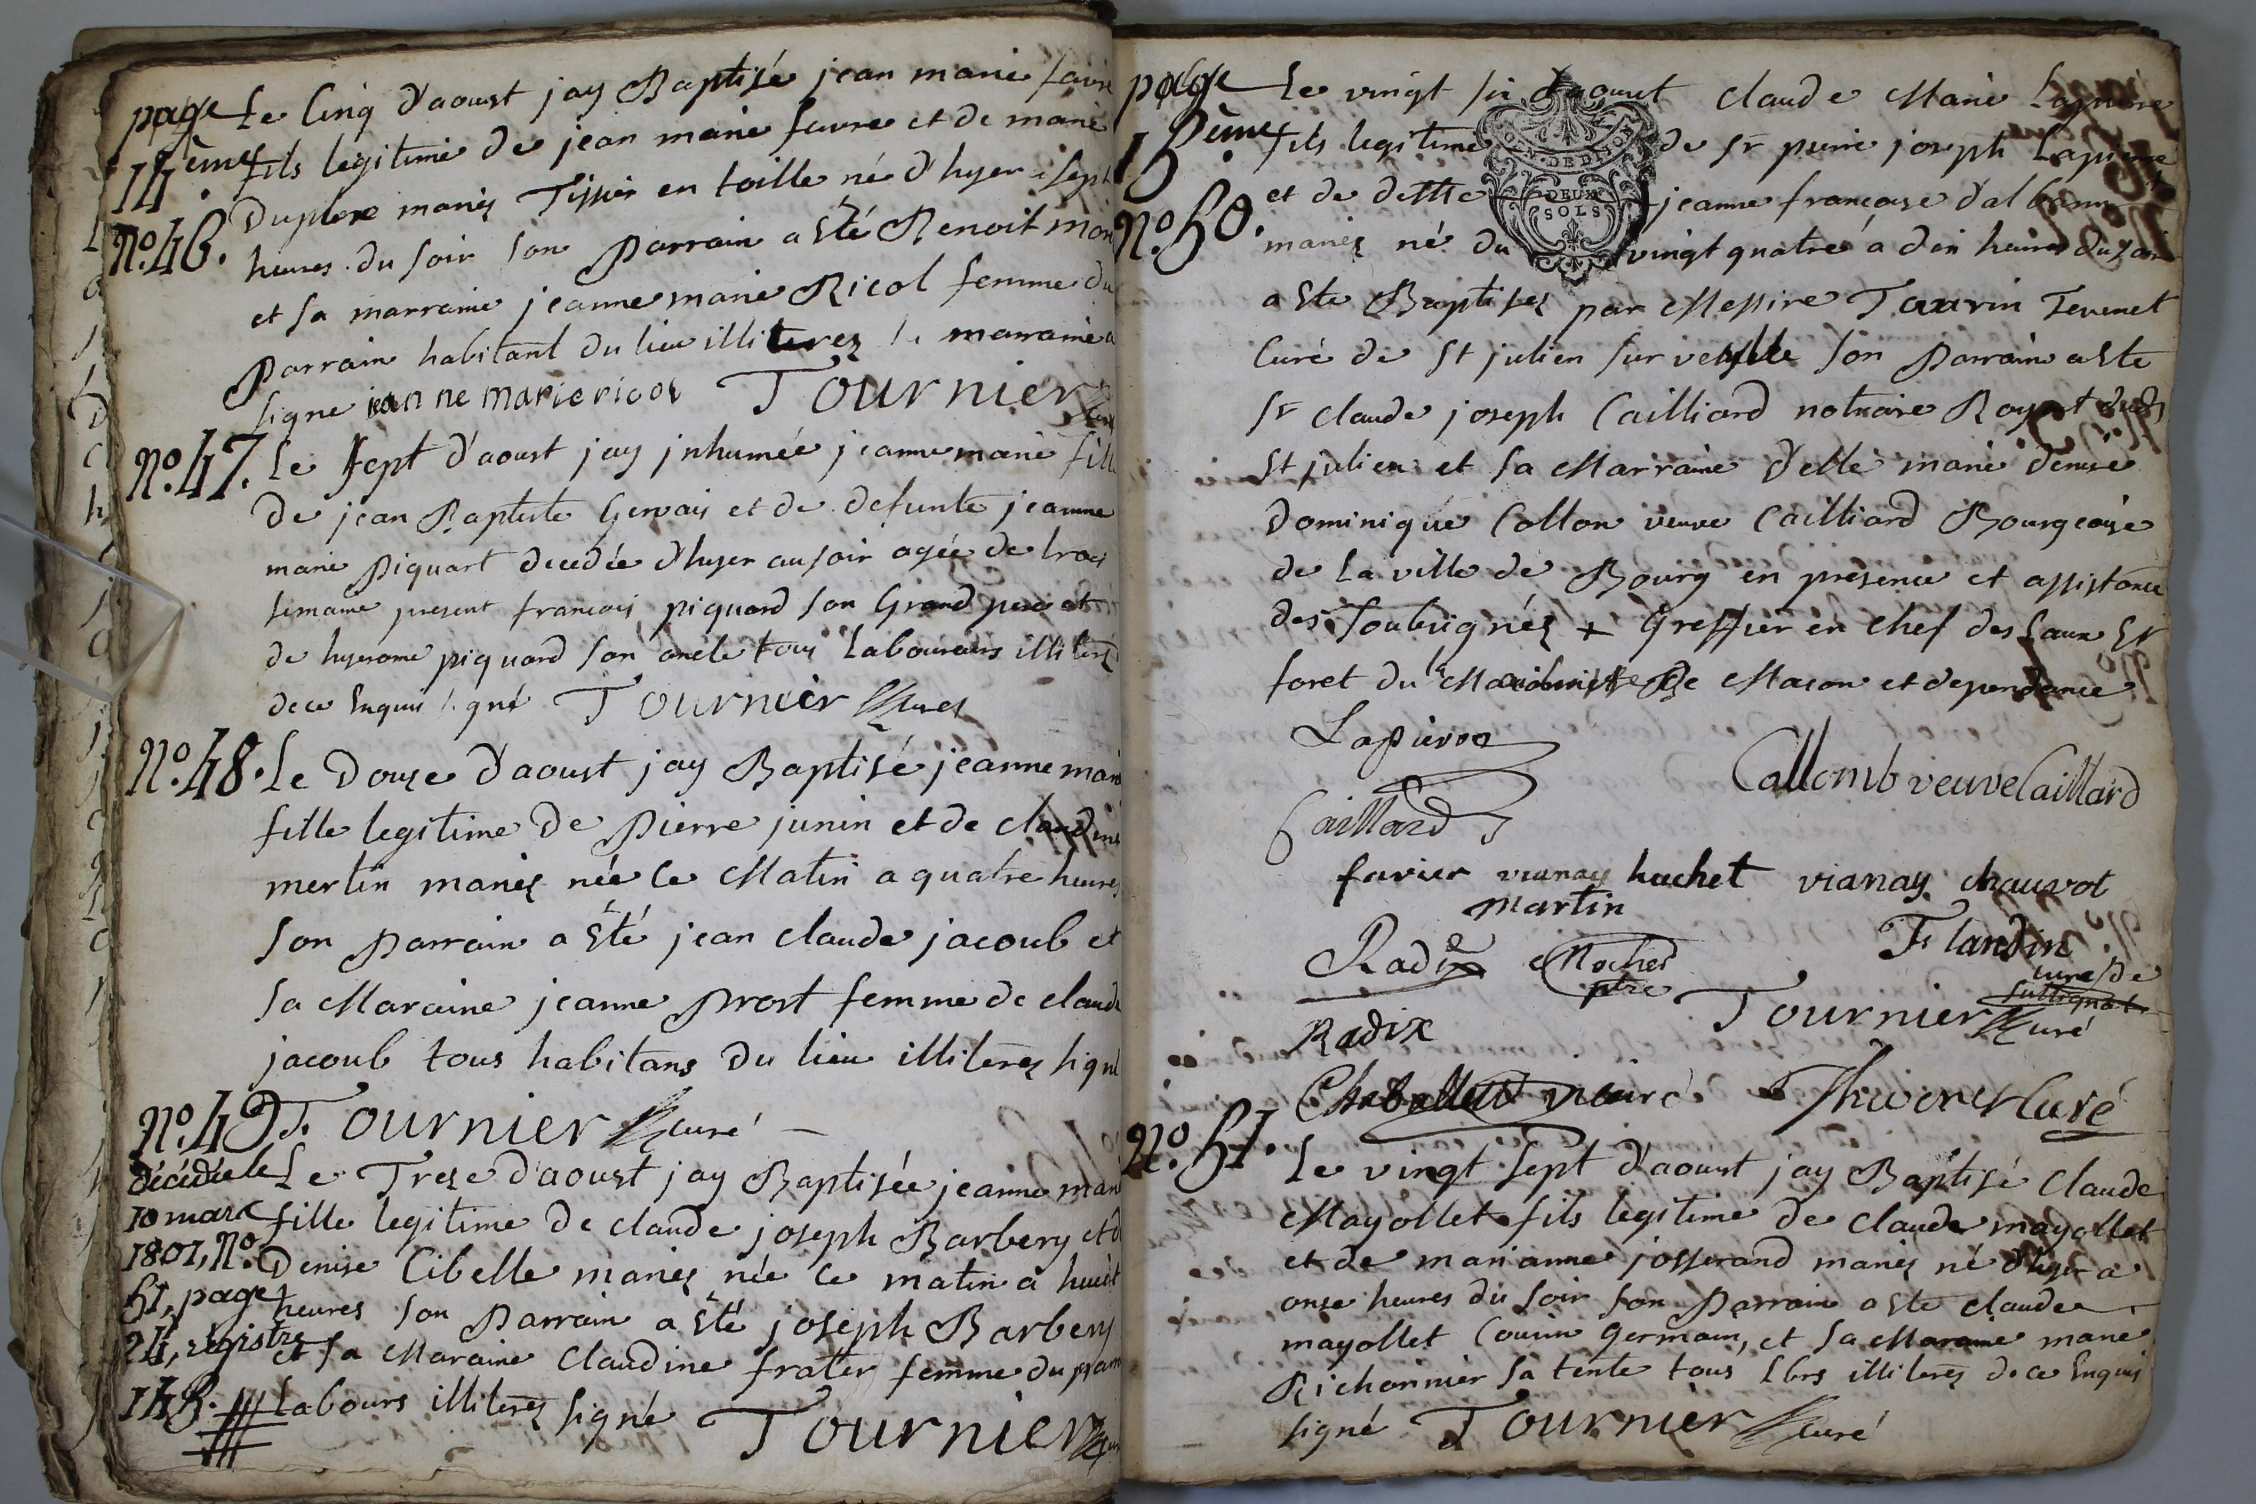 page
14ème
Le Cinq d'aoust jay Baptisé jean marie favre
fils legitime de jean marie favre et de marie
Duplere mariés Tissier en toille né d'hyer a sept
No. 46.
heures du soir son Parrain a Eté Benoit
et sa marraine jeanne marie Ricol femme du
Parrain habitant du lieu illiteres la marraine a
signe jeanne marie ricol Tournier Curé
No. 47.
Le sept d'aoust jay jnhumée jeanne marie fille
de jean Baptiste Gervais et de defunte jeanne
marie Piquart decedée d'hyer au soir agée de trois
semaine present francois piquard son Grand pere et
de hyerome piquard son oncle tous Laboureurs illiteres
de ce Enquis signé Tournier Curé
No. 48.
Le Douze d'aoust jay Baptisé jeanne marie
fille legitime de Pierre junin et de claudine
merlin mariés née Ce Matin a quatre heures
son Parrain a Eté jean claude jacoub et
sa Maraine jeanne Prost femme de claude
jacoub tous habitans du lieu illiteres signé
No. 49.
Tournier Curé
décédée le
10 mars
1801, No.
51, page
24, registre
148.
Le Treze d'aoust jay Baptisée jeanne marie
fille legitime de claude joseph Barbery et de
Denise Cibelle mariés née ce matin a huit
heures son Parrain a Eté joseph Barbery
et sa Maraine Claudine frater femme du parain
Labours illiteres signé Tournier Curé
page
15ème
No. 50.
Le vingt six d'aoust claude Marie Lapierre
fils legitime de Sr pierre joseph Lapierre
et de delle jeanne francoise d'albanne
mariés né du vingt quatre a dix heures du soir
a Ete Baptisez par Messire Taurin Tevenet
Curé de St julien sur veylle son Parrain a Ete
Sr claude joseph Cailliard notaire Royal dudt
St julien et sa Marraine Delle marie denise
Dominique Collon veuve Cailliard Bourgeoise
de La ville de Bourg en presence et assistance
des soubsignés + Greffier en chef des Eaux Et
foret du de Macon et dependance
GEN. DE DIJON
DEUX
SOLS
Lapierre
Callomb veuve Caillard
Caillard
favier vianay huchet vianay chauvot
martin
Radix Nocher ptre Flandin
curé de
Radix Tournier Curé
vicaire Curé
No. 51.
Le vingt sept d'aoust jay Baptisé Claude
Mayollet fils legitime de Claude mayollet
et de marianne josserand mariés né d'hyer a
onze heures du soir son Parrain a Ete claude
mayollet Cousin Germain, et sa Maraine marie
Richonnier sa tente tous Lbrs illiteres de ce Enquis
signé Tournier Curé